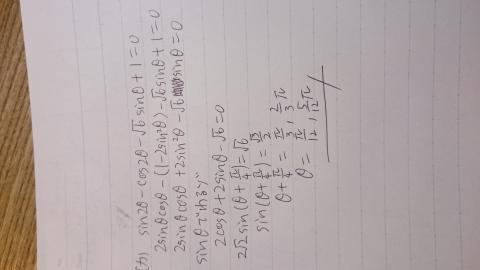 (カ) sin2θ - cos2θ - √6 sinθ + 1 = 0
2sinθcosθ - (1-2sin²θ) - √6 sinθ + 1 = 0
2sinθcosθ + 2sin²θ - √6 sinθ = 0
sinθでわると
2cosθ + 2sinθ - √6 = 0
2√2 sin(θ + π/4) = √6
sin(θ + π/4) = √3/2
θ + π/4 = π/3, 2/3 π
θ = π/12, 5/12 π